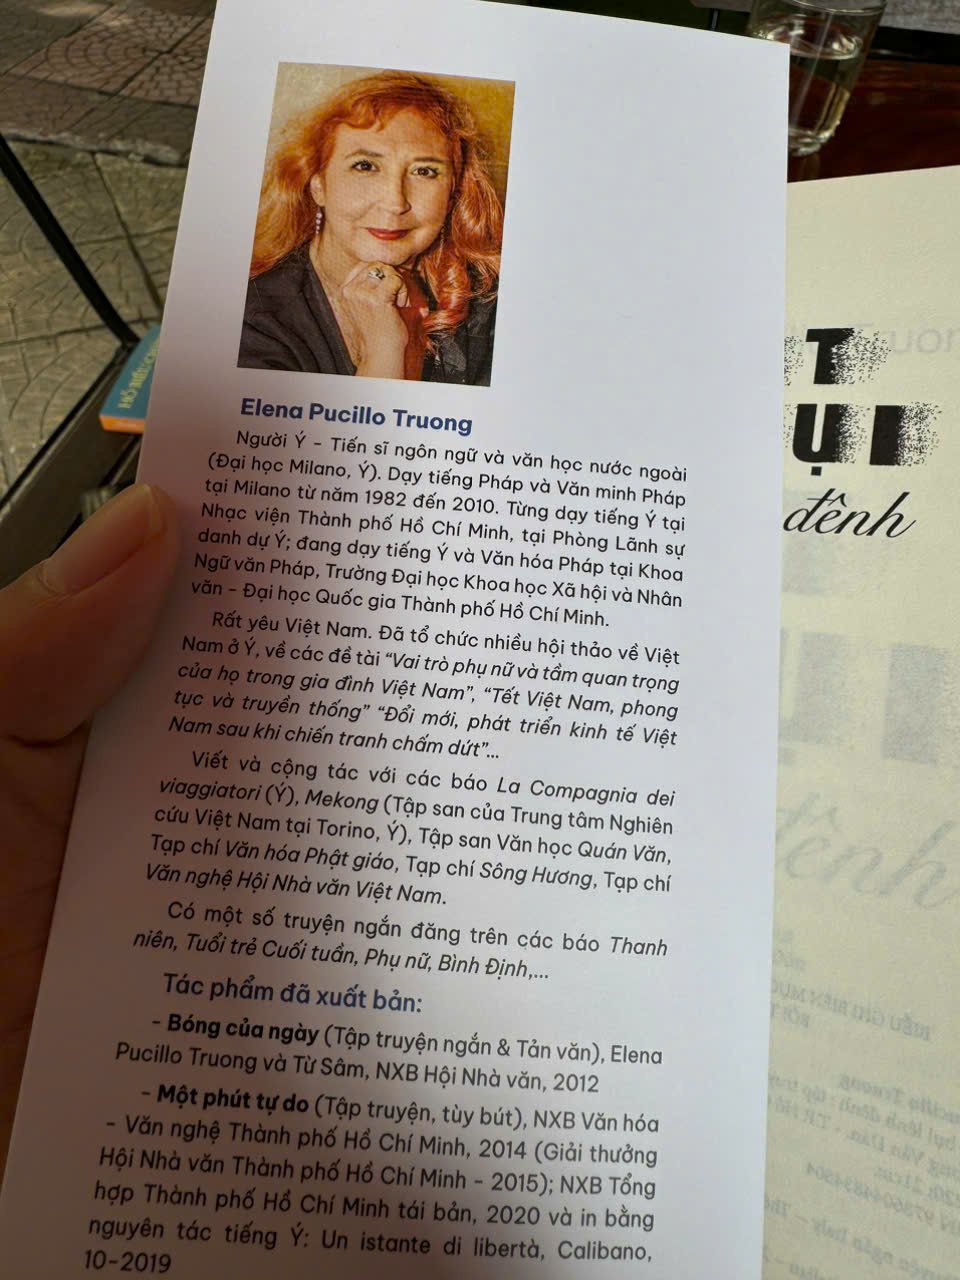 Elena Pucillo Truong
Người Ý - Tiến sĩ ngôn ngữ và văn học nước ngoài
(Đại học Milano, Ý). Dạy tiếng Pháp và Văn minh Pháp
tại Milano từ năm 1982 đến 2010. Từng dạy tiếng Ý tại
Nhạc viện Thành phố Hồ Chí Minh, tại Phòng Lãnh sự
danh dự Ý; đang dạy tiếng Ý và Văn hóa Pháp tại Khoa
Ngữ văn Pháp, Trường Đại học Khoa học Xã hội và Nhân
văn - Đại học Quốc gia Thành phố Hồ Chí Minh.
Rất yêu Việt Nam. Đã tổ chức nhiều hội thảo về Việt
Nam ở Ý, về các đề tài “Vai trò phụ nữ và tầm quan trọng
của họ trong gia đình Việt Nam”, “Tết Việt Nam, phong
tục và truyền thống” “Đổi mới, phát triển kinh tế Việt
Nam sau khi chiến tranh chấm dứt”...
Viết và cộng tác với các báo La Compagnia dei
viaggiatori (Ý), Mekong (Tập san của Trung tâm Nghiên
cứu Việt Nam tại Torino, Ý), Tập san Văn học Quán Văn,
Tạp chí Văn hóa Phật giáo, Tạp chí Sông Hương, Tạp chí
Văn nghệ Hội Nhà văn Việt Nam.
Có một số truyện ngắn đăng trên các báo Thanh
niên, Tuổi trẻ Cuối tuần, Phụ nữ, Bình Định,...
Tác phẩm đã xuất bản:
- Bóng của ngày (Tập truyện ngắn & Tản văn), Elena
Pucillo Truong và Từ Sâm, NXB Hội Nhà văn, 2012
- Một phút tự do (Tập truyện, tùy bút), NXB Văn hóa
- Văn nghệ Thành phố Hồ Chí Minh, 2014 (Giải thưởng
Hội Nhà văn Thành phố Hồ Chí Minh - 2015); NXB Tổng
hợp Thành phố Hồ Chí Minh tái bản, 2020 và in bằng
nguyên tác tiếng Ý: Un istante di libertà, Calibano,
10-2019
T
ỤI
đênh